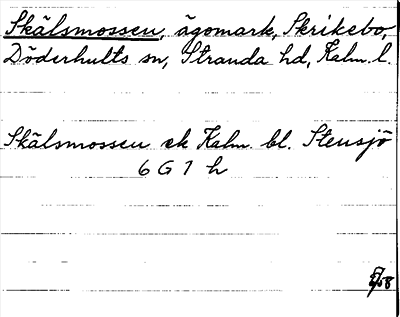 Skälsmossen, ägomark, Skrikebo,
Döderhults sn, Stranda hd, Kalm. l.
Skälsmossen ek Kalm. bl. Stensjö
6 G 7 h